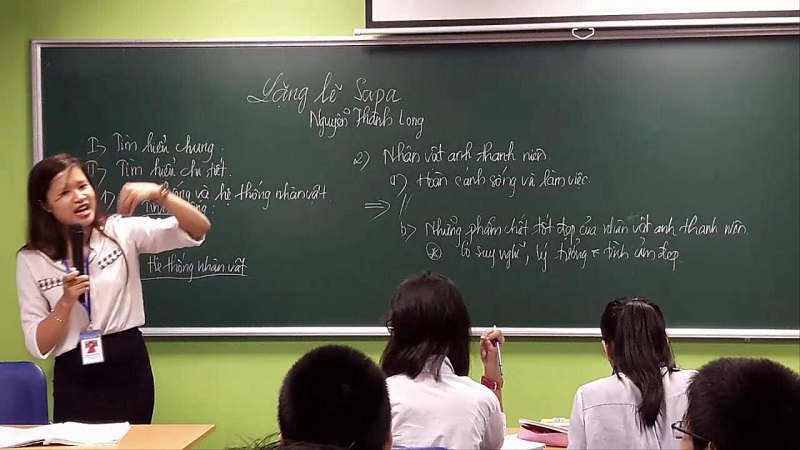 Lặng lẽ Sapa
Nguyễn Thành Long
I> Tìm hiểu chung.
II> Tìm hiểu chi tiết.
1> và hệ thống nhân vật
Hệ thống nhân vật
2) Nhân vật anh thanh niên
a) Hoàn cảnh sống và làm việc.
=> //
b) Những phẩm chất tốt đẹp của nhân vật anh thanh niên.
* Có suy nghĩ, lý tưởng tình cảm đẹp